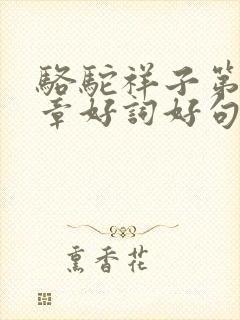 駱駝祥子第
章好詞好句
熏香花